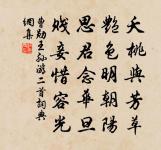 夭桃與芳草
艷色明朝陽
思君念華旦
賤妾惜容光
曹勛王孫游二首詞典
網集